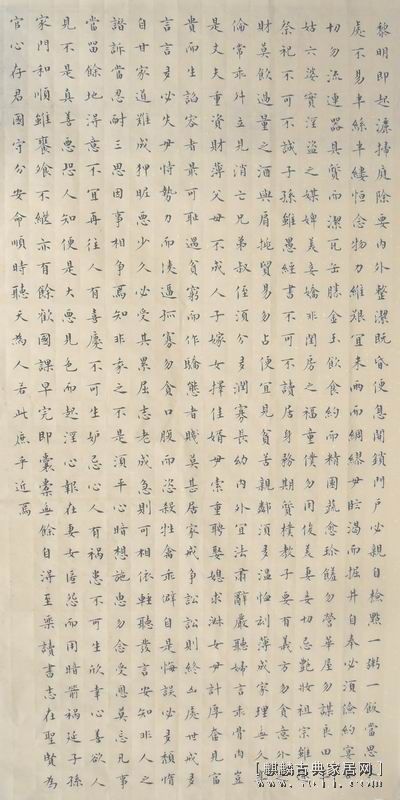 黎明即起灑掃庭除要內外整潔既昏便息關鎖門戶必親自檢點一粥一飯當思來
處不易半絲半縷恒念物力維艱宜未雨而綢繆毋臨渴而掘井自奉必須儉約宴客
切勿流連器具質而潔瓦缶勝金玉飲食約而精園蔬愈珍饈勿營華屋勿謀良田三
姑六婆實淫盜之媒婢美妾嬌非閨房之福童僕勿用俊美妻妾切忌艷妝祖宗雖遠
祭祀不可不誠子孫雖愚經書不可不讀居身務期質樸教子要有義方勿貪意外之
財莫飲過量之酒與肩挑貿易勿占便宜見貧苦親鄰須多溫恤刻薄成家理無久享
倫常乖舛立見消亡兄弟叔侄須分多潤寡長幼內外宜法肅辭嚴聽婦言乖骨肉豈
是丈夫重資財薄父母不成人子嫁女擇佳婿毋索重聘娶媳求淑女毋計厚奩見富
貴而生諂容者最可恥遇貧窮而作驕態者賤莫甚居家戒爭訟訟則終凶處世戒多
言言多必失毋恃勢力而凌逼孤寡勿貪口腹而恣殺牲禽乖僻自是悔誤必多頹惰
自甘家道難成狎昵惡少久必受其累屈志老成急則可相依輕聽發言安知非人之
譖訴當忍耐三思因事相爭焉知非我之不是須平心暗想施惠勿念受恩莫忘凡事
當留餘地得意不宜再往人有喜慶不可生妒忌心人有禍患不可生欣幸心善欲人
見不是真善惡恐人知便是大惡見色而起淫心報在妻女匿怨而用暗箭禍延子孫
家門和順雖饔飧不繼亦有餘歡國課早完即囊橐無餘自得至樂讀書志在聖賢為
官心存君國守分安命順時聽天為人若此庶乎近焉
[麒麟古典家居网]